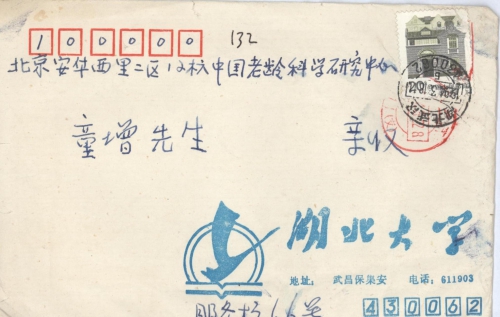 100000
132
北京安华西里二区12栋中国老龄科学研究中心
童增先生 亲收
湖北大学
地址: 武昌保集安 电话: 611903
430062